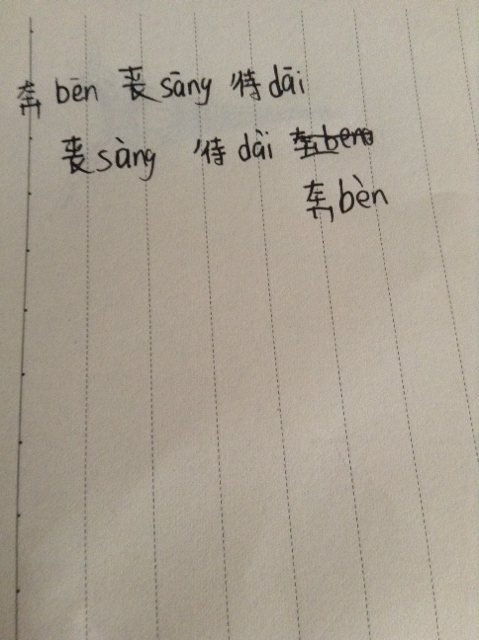 奔 bēn 丧 sāng 待 dāi
丧 sàng 待 dài
奔 bèn